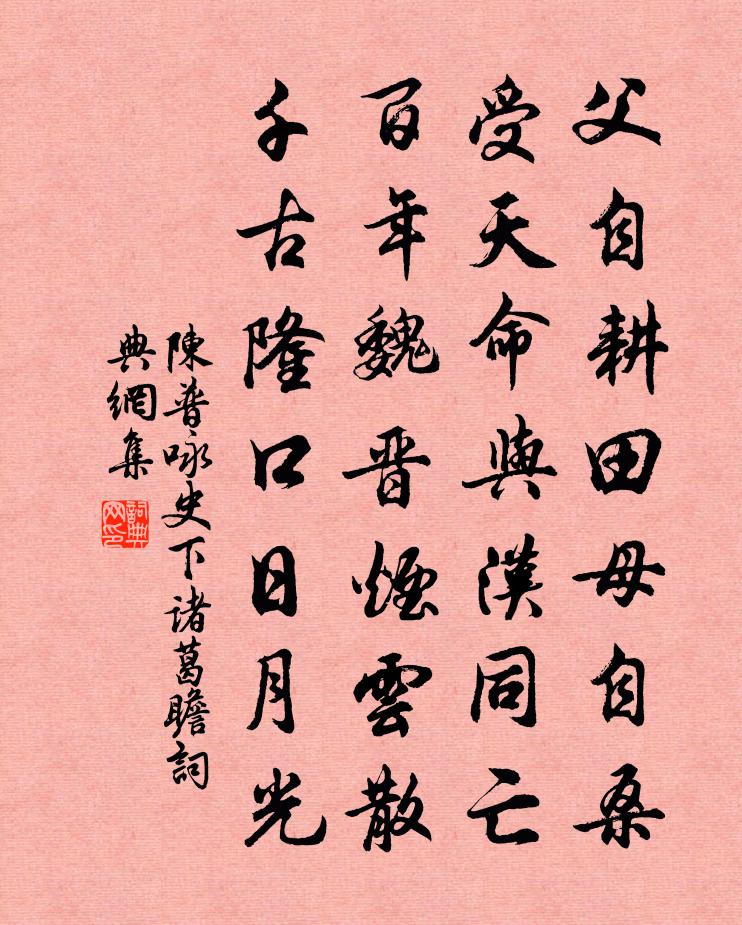 父自耕田母自桑
受天命與漢同亡
百年魏晋煙雲散
千古隆口日月光
陳普咏史下诸葛瞻詞
典網集
詞典網印